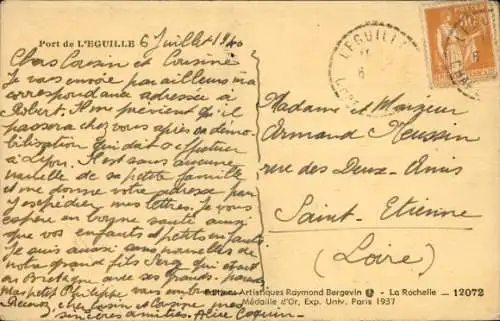 Port de L'EGUILLE 6 Juillet 1940
Chers Cousin et Cousine
Je vous envoie par ailleurs ma
correspondance adressée à
Robert. Il me prévient qu'il
passera chez vous après sa démo-
bilisation qui doit s'effectuer
à Lyon. Il est sans aucune
nouvelle de sa petite famille
et me donne votre adresse pour
y expédier mes lettres. Je vous
espère en bonne santé ainsi
que vos enfants et petits enfants
Je suis aussi sans nouvelles de
notre grand fils Serge qui était
en Bretagne avec ses grands-parents
Mon petit Philippe vous embrasse
Recevez, cher Cousin et Cousine mes
sincères amitiés. Alice Coquin
L'EGUILLE
6
80
POSTES
Madame et Monsieur
Armand
rue des Deux-Amis
Saint-Etienne
(Loire)
Editions Artistiques Raymond Bergevin - La Rochelle - 12072
Médaille d'Or, Exp. Univ. Paris 1937